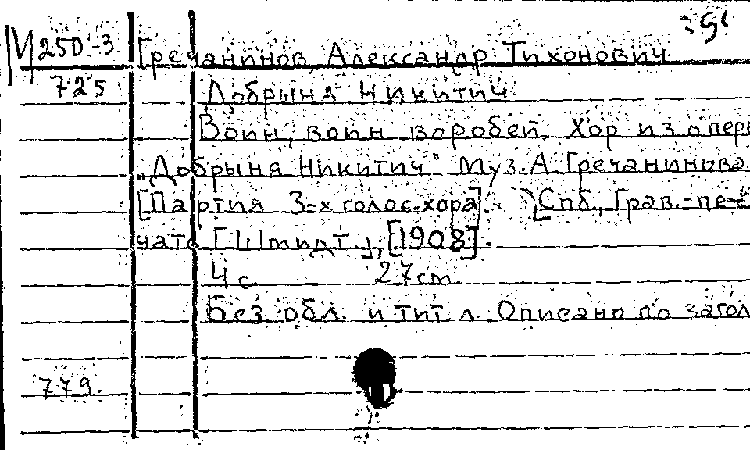 М 250-3
725
Гречанинов, Александр Тихонович
Добрыня Никитич
Воин, воин воробей. Хор из опер
„Добрыня Никитич" Муз. А. Гречанинова.
[Партия 3-х голос. хора]. Спб., Грав.-пе-
чатн Шмидт], [1908].
4 с 27 cm.
Без обл. и тит л. Описано по загол
779.